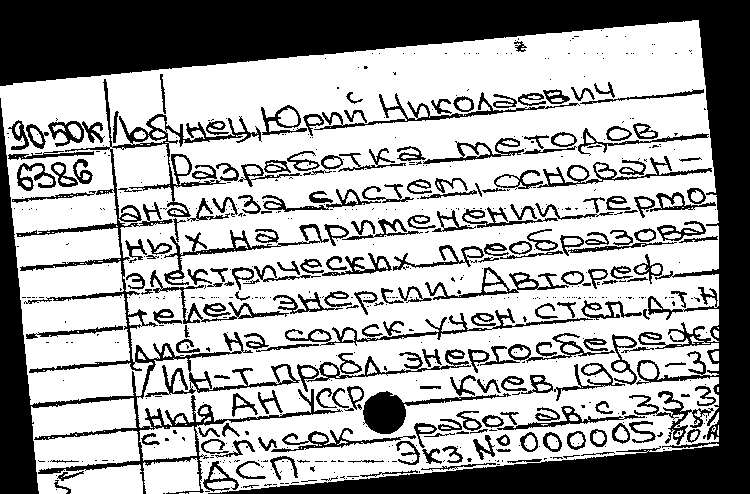 90-50К Лобунец, Юрий Николаевич
6386 Разработка методов
анализа систем, основан-
ных на применении термо-
электрических преобразова-
телей энергии: Автореф.
дис. на соиск. учен. степ. д.т.н
/ Ин-т пробл. энергосбереже
ния АН УССР - Киев, 1990-
с.: ил.
Список работ ав.: с. 33-3
ДСП. Экз. № 000005.
5